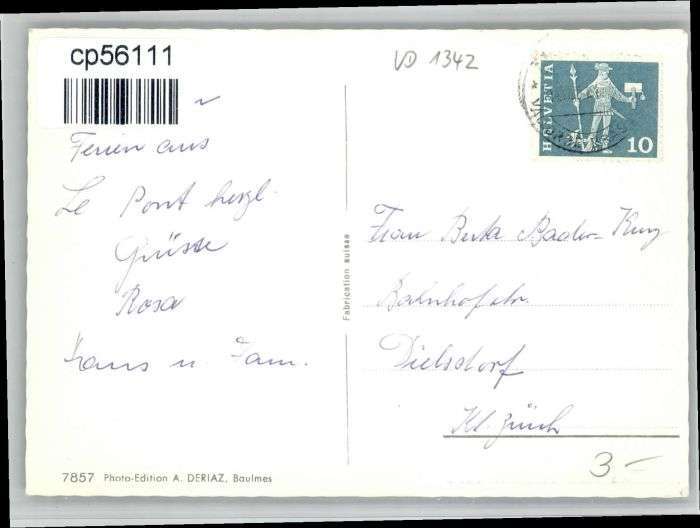 cp56111
VD 1342
HELVETIA
10
Ferien aus
Le Pont herzl.
Grüsse
Rosa
Hans u. Fam.
Fabrication suisse
Frau Berta Bader-Kunz
Bahnhofstr.
Dielsdorf
Kt. Zürich
3-
7857 Photo-Edition A. DERIAZ, Baulmes